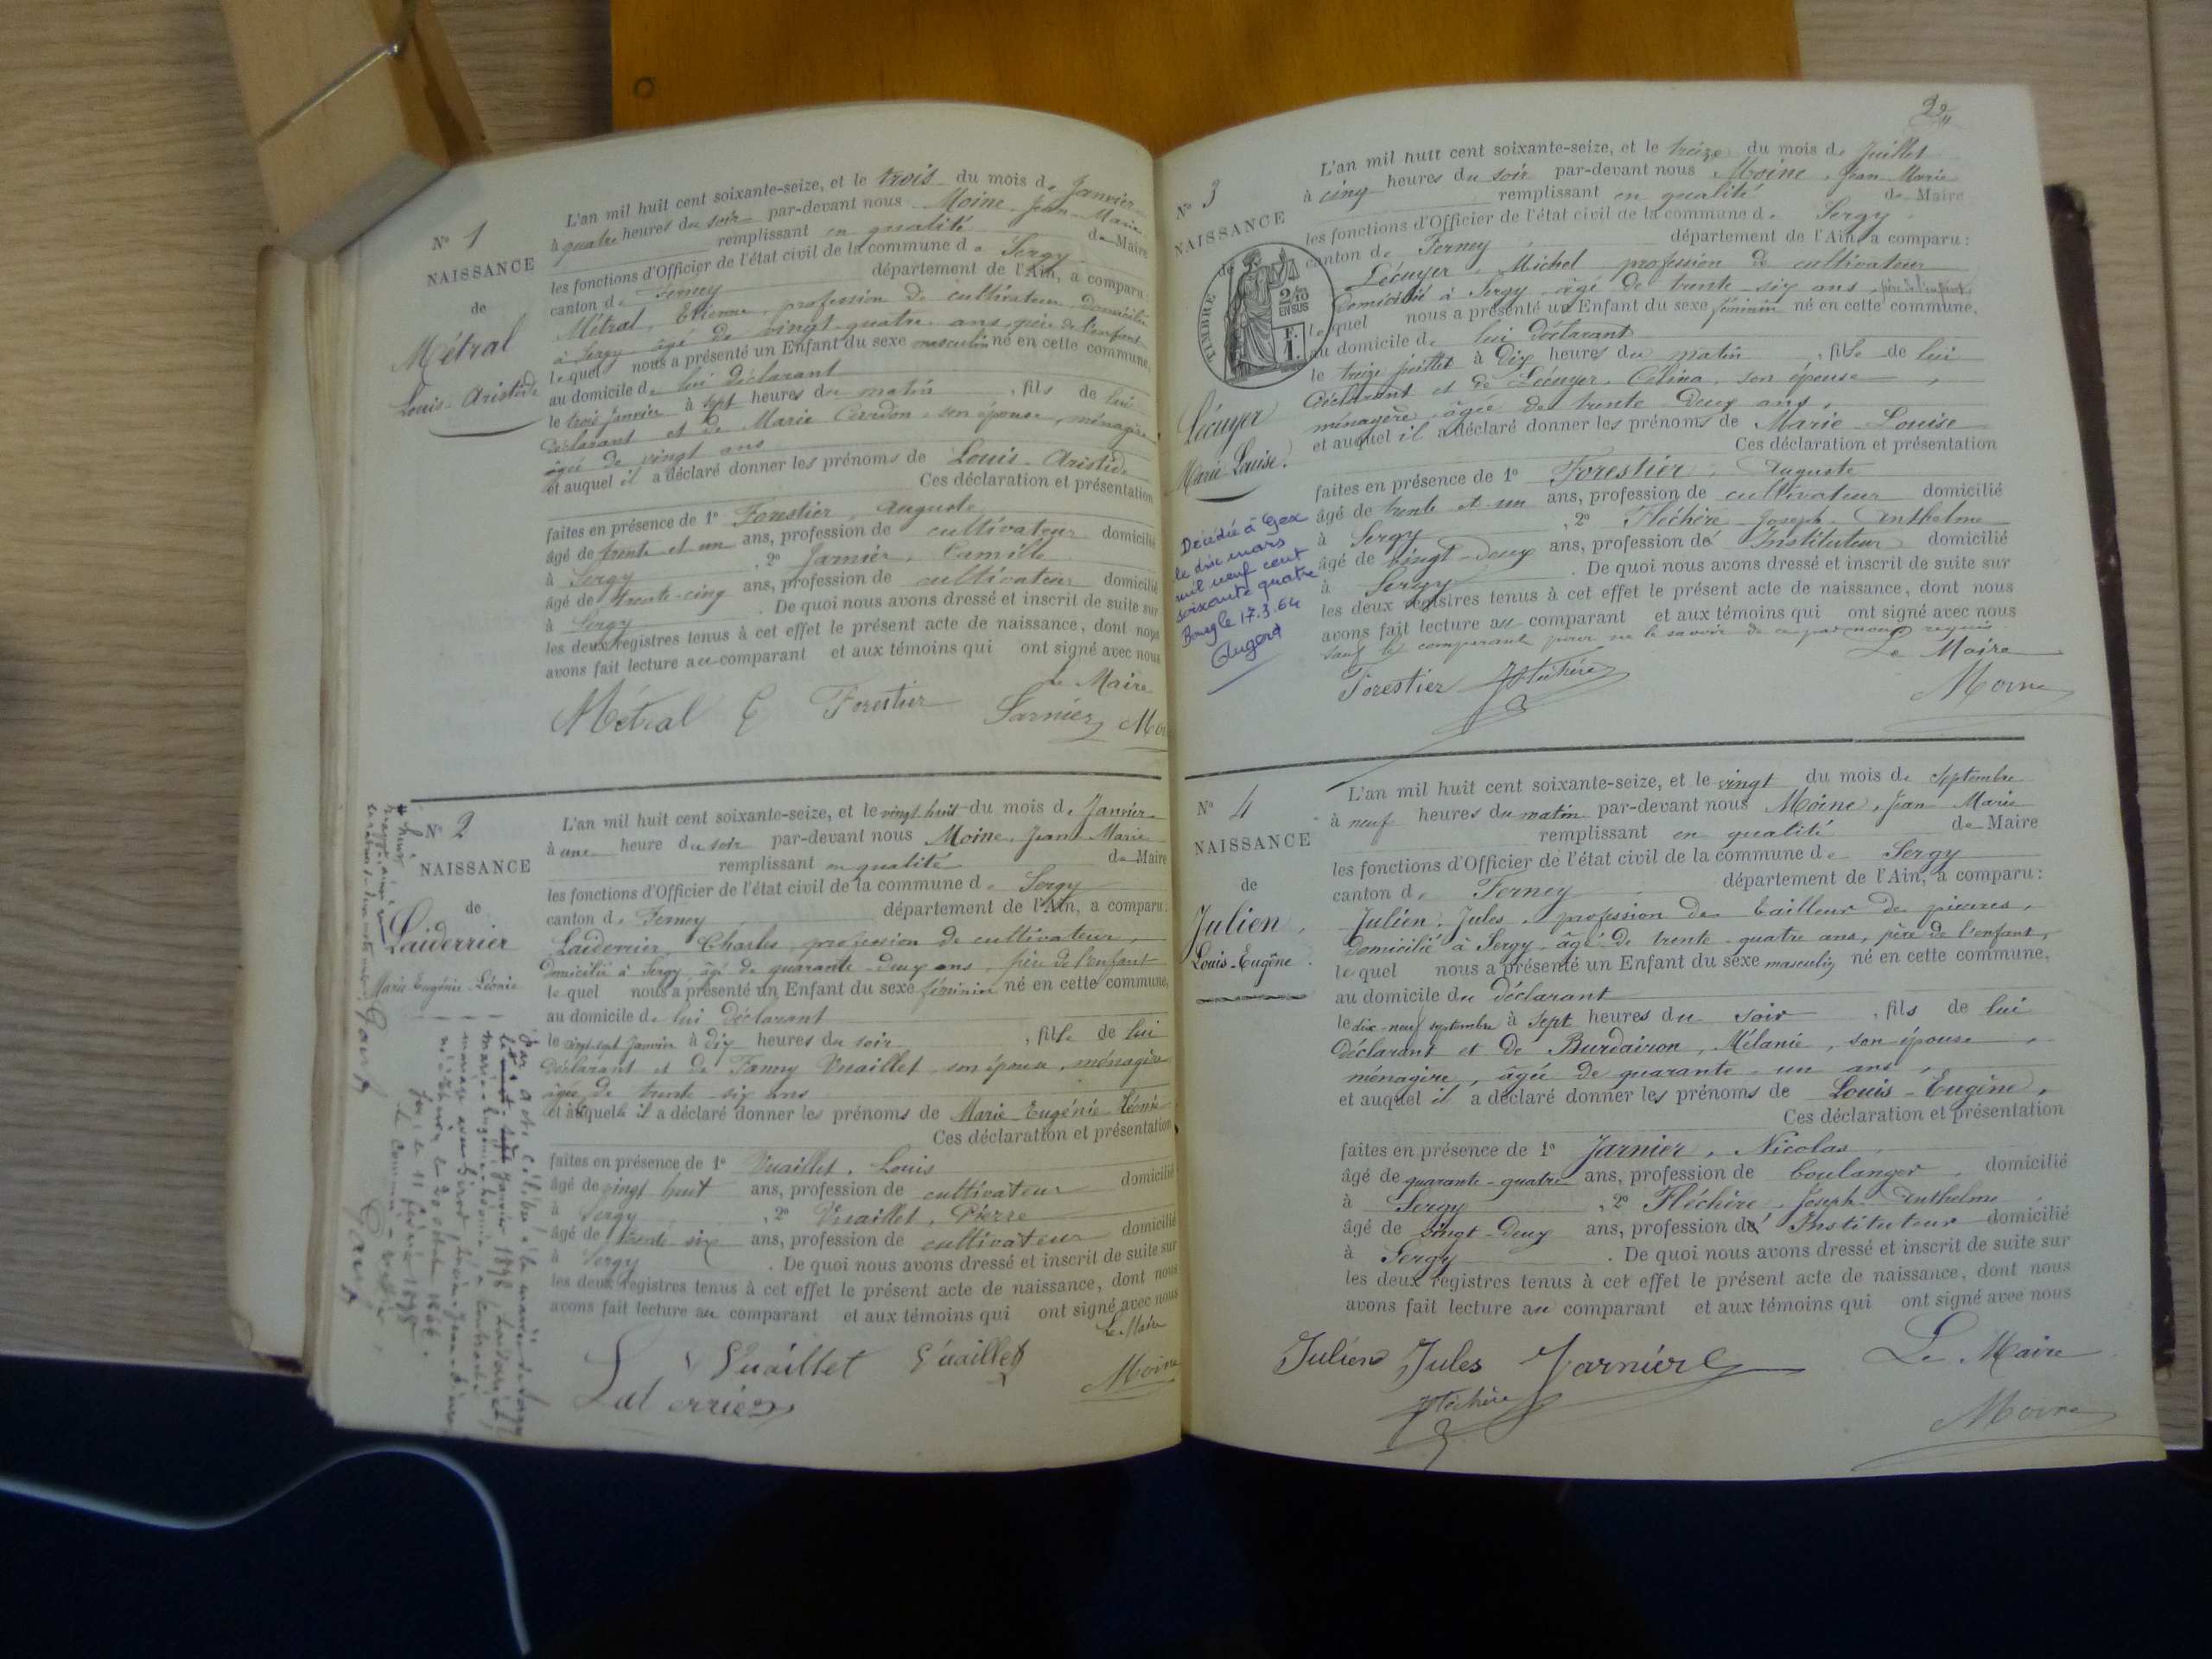 N° 1
NAISSANCE
de
Métral
Louis-Aristide
L'an mil huit cent soixante-seize, et le trois du mois de Janvier
à quatre heures du soir par-devant nous Moine, Jean-Marie
remplissant en qualité de Maire
les fonctions d'Officier de l'état civil de la commune de Sergy
canton de Ferney département de l'Ain, a comparu:
Métral, Etienne, profession de cultivateur domicilié
à Sergy âgé de vingt-quatre ans, père de l'enfant
lequel nous a présenté un Enfant du sexe masculin né en cette commune,
au domicile de lui déclarant
le trois Janvier à sept heures du matin, fils de lui
déclarant et de Marie Cardon son épouse, ménagère
âgée de vingt ans
et auquel il a déclaré donner les prénoms de Louis-Aristide
Ces déclaration et présentation
faites en présence de 1° Forestier, Auguste
âgé de trente et un ans, profession de cultivateur domicilié
à Sergy, 2° Jarnier, Camille
âgé de trente-cinq ans, profession de cultivateur domicilié
à Sergy. De quoi nous avons dressé et inscrit de suite sur
les deux registres tenus à cet effet le présent acte de naissance, dont nous
avons fait lecture au comparant et aux témoins qui ont signé avec nous
Le Maire
Métral E Forestier Jarnier
N° 2
NAISSANCE
de
Laiderrier
Marie-Eugénie-Léonie
L'an mil huit cent soixante-seize, et le vingt huit du mois de Janvier
à une heure du soir par-devant nous Moine, Jean-Marie
remplissant en qualité de Maire
les fonctions d'Officier de l'état civil de la commune de Sergy
canton de Ferney département de l'Ain, a comparu:
Laiderrier, Charles, profession de cultivateur,
domicilié à Sergy, âgé de quarante-deux ans, père de l'enfant
lequel nous a présenté un Enfant du sexe féminin né en cette commune,
au domicile de lui déclarant
le vingt-sept Janvier à dix heures du soir, fille de lui
déclarant et de Fanny Vuaillet son épouse, ménagère
âgée de trente-six ans
et à laquelle il a déclaré donner les prénoms de Marie-Eugénie-Léonie
Ces déclaration et présentation
faites en présence de 1° Vuaillet, Louis
âgé de vingt huit ans, profession de cultivateur domicilié
à Sergy, 2° Vuaillet, Pierre
âgé de trente six ans, profession de cultivateur domicilié
à Sergy. De quoi nous avons dressé et inscrit de suite sur
les deux registres tenus à cet effet le présent acte de naissance, dont nous
avons fait lecture au comparant et aux témoins qui ont signé avec nous
Le Maire
Vuaillet Vuaillet
Moine
Par acte célébré à la mairie de Sergy
janvier 1898
Marie-Eugénie-Léonie a contracté
mariage avec
11 février 1898
N° 3
NAISSANCE
de
TIMBRE
2/10
EN SUS
F.
1.
Lécuyer
Marie-Louise.
Décédée à Gex
le dix mars
mil neuf cent
soixante quatre
Bourg le 17.3.64
L'an mil huit cent soixante-seize, et le treize du mois de Juillet
à cinq heures du soir par-devant nous Moine, Jean-Marie
remplissant en qualité de Maire
les fonctions d'Officier de l'état civil de la commune de Sergy
canton de Ferney, département de l'Ain, a comparu:
Lécuyer, Michel profession de cultivateur
domicilié à Sergy âgé de trente-six ans, père de l'enfant,
lequel nous a présenté un Enfant du sexe féminin né en cette commune,
au domicile de lui déclarant
le treize juillet à dix heures du matin, fille de lui
déclarant et de Lécuyer, Célina, son épouse,
ménagère, âgée de trente-deux ans,
et auquel il a déclaré donner les prénoms de Marie-Louise
Ces déclaration et présentation
faites en présence de 1° Forestier, Auguste
âgé de trente et un ans, profession de cultivateur domicilié
à Sergy, 2° Fléchère Joseph-Anthelme
âgé de vingt-deux ans, profession d'Instituteur domicilié
à Sergy. De quoi nous avons dressé et inscrit de suite sur
les deux registres tenus à cet effet le présent acte de naissance, dont nous
avons fait lecture au comparant et aux témoins qui ont signé avec nous
sauf le comparant pour ne le savoir de ce par nous requis
Le Maire
Forestier JFléchère
Moine
N° 4
NAISSANCE
de
Julien,
Louis-Eugène.
L'an mil huit cent soixante-seize, et le vingt du mois de Septembre
à neuf heures du matin par-devant nous Moine, Jean-Marie
remplissant en qualité de Maire
les fonctions d'Officier de l'état civil de la commune de Sergy
canton de Ferney département de l'Ain, a comparu:
Julien, Jules, profession de tailleur de pierres,
domicilié à Sergy, âgé de trente-quatre ans, père de l'enfant,
lequel nous a présenté un Enfant du sexe masculin né en cette commune,
au domicile du déclarant
le dix-neuf septembre à sept heures du soir, fils de lui
déclarant et de Burdairon, Mélanie, son épouse,
ménagère, âgée de quarante-un ans,
et auquel il a déclaré donner les prénoms de Louis-Eugène,
Ces déclaration et présentation
faites en présence de 1° Jarnier, Nicolas,
âgé de quarante-quatre ans, profession de boulanger, domicilié
à Sergy, 2° Fléchère, Joseph-Anthelme
âgé de vingt-deux ans, profession d'Instituteur domicilié
à Sergy. De quoi nous avons dressé et inscrit de suite sur
les deux registres tenus à cet effet le présent acte de naissance, dont nous
avons fait lecture au comparant et aux témoins qui ont signé avec nous
Julien Jules Jarnier Le Maire
JFléchère
Moine